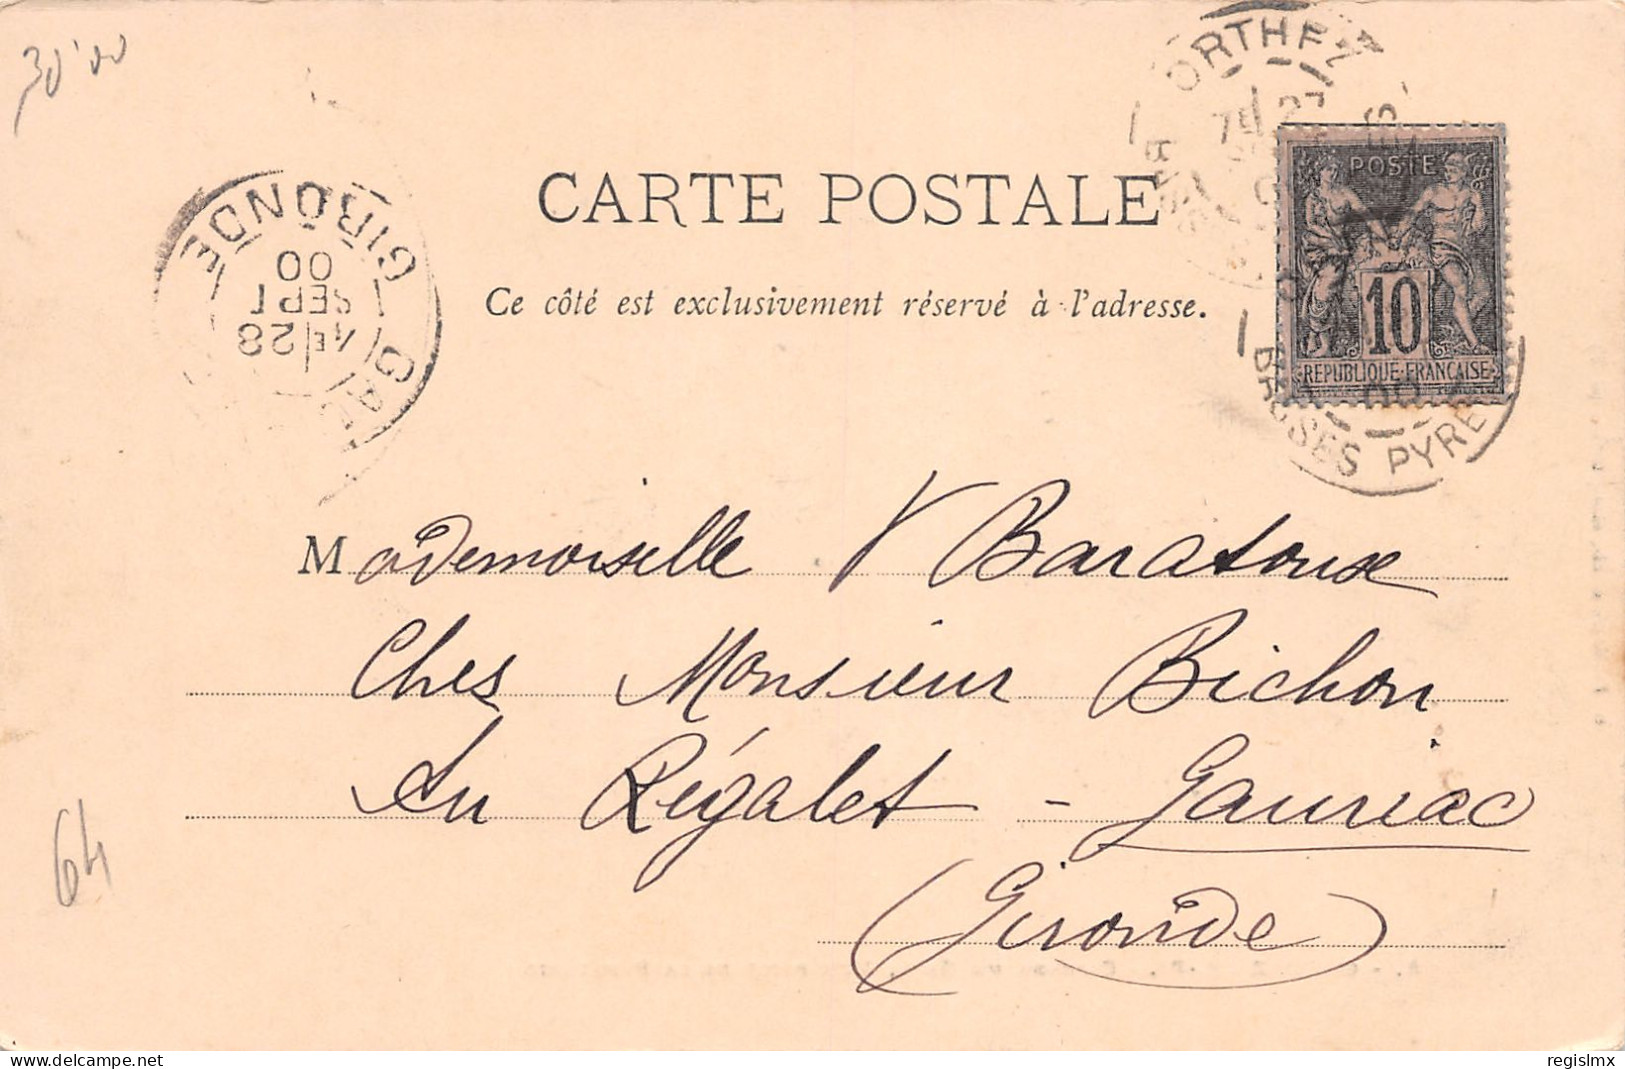 30'00
ORTHEZ
7E 27
00
BASSES PYRE
GIRONDE
GAU
1E 28
SEPT
00
POSTE
10
REPUBLIQUE FRANCAISE
CARTE POSTALE
Ce côté est exclusivement réservé à l'adresse.
Mademoiselle Y Baratouse
Ches Monsieur Bichon
Au Régalet - Gauriac
(Gironde)
64
regislmx